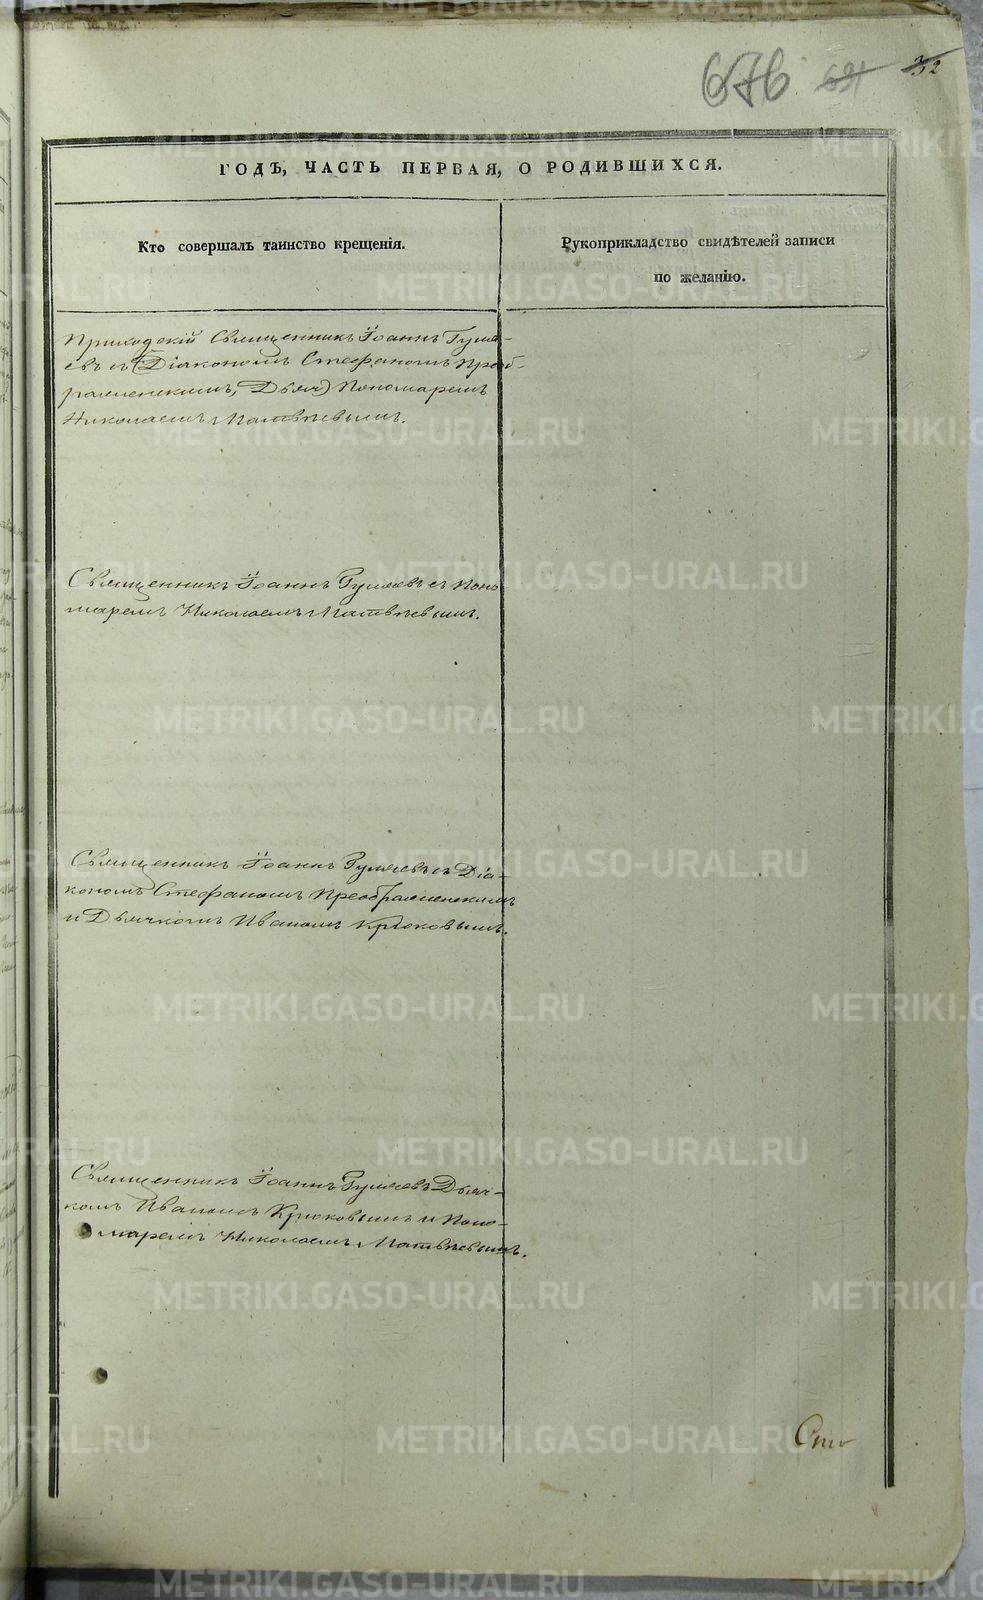 676 691 32
ГОДЪ, ЧАСТЬ ПЕРВАЯ, О РОДИВШИХСЯ.
Кто совершалъ таинство крещенія.
Рукоприкладство свидѣтелей записи
по желанію.
Приходскій Священникъ Іоаннъ Гуля-
евъ съ Діакономъ Стефаномъ Преоб-
раженскимъ, Дьяч) Пономаремъ
Николаемъ Матвѣевымъ.
Священникъ Іоаннъ Гуляевъ съ Поно-
маремъ Николаемъ Матвѣевымъ.
Священникъ Іоаннъ Гуляевъ съ Діа-
кономъ Стефаномъ Преображенскимъ
и Дьячкомъ Иваномъ Крюковымъ.
Священникъ Іоаннъ Гуляевъ Дьяч-
комъ Иваномъ Крюковымъ и Поно-
маремъ Николаемъ Матвѣевымъ.
METRIKI.GASO-URAL.RU